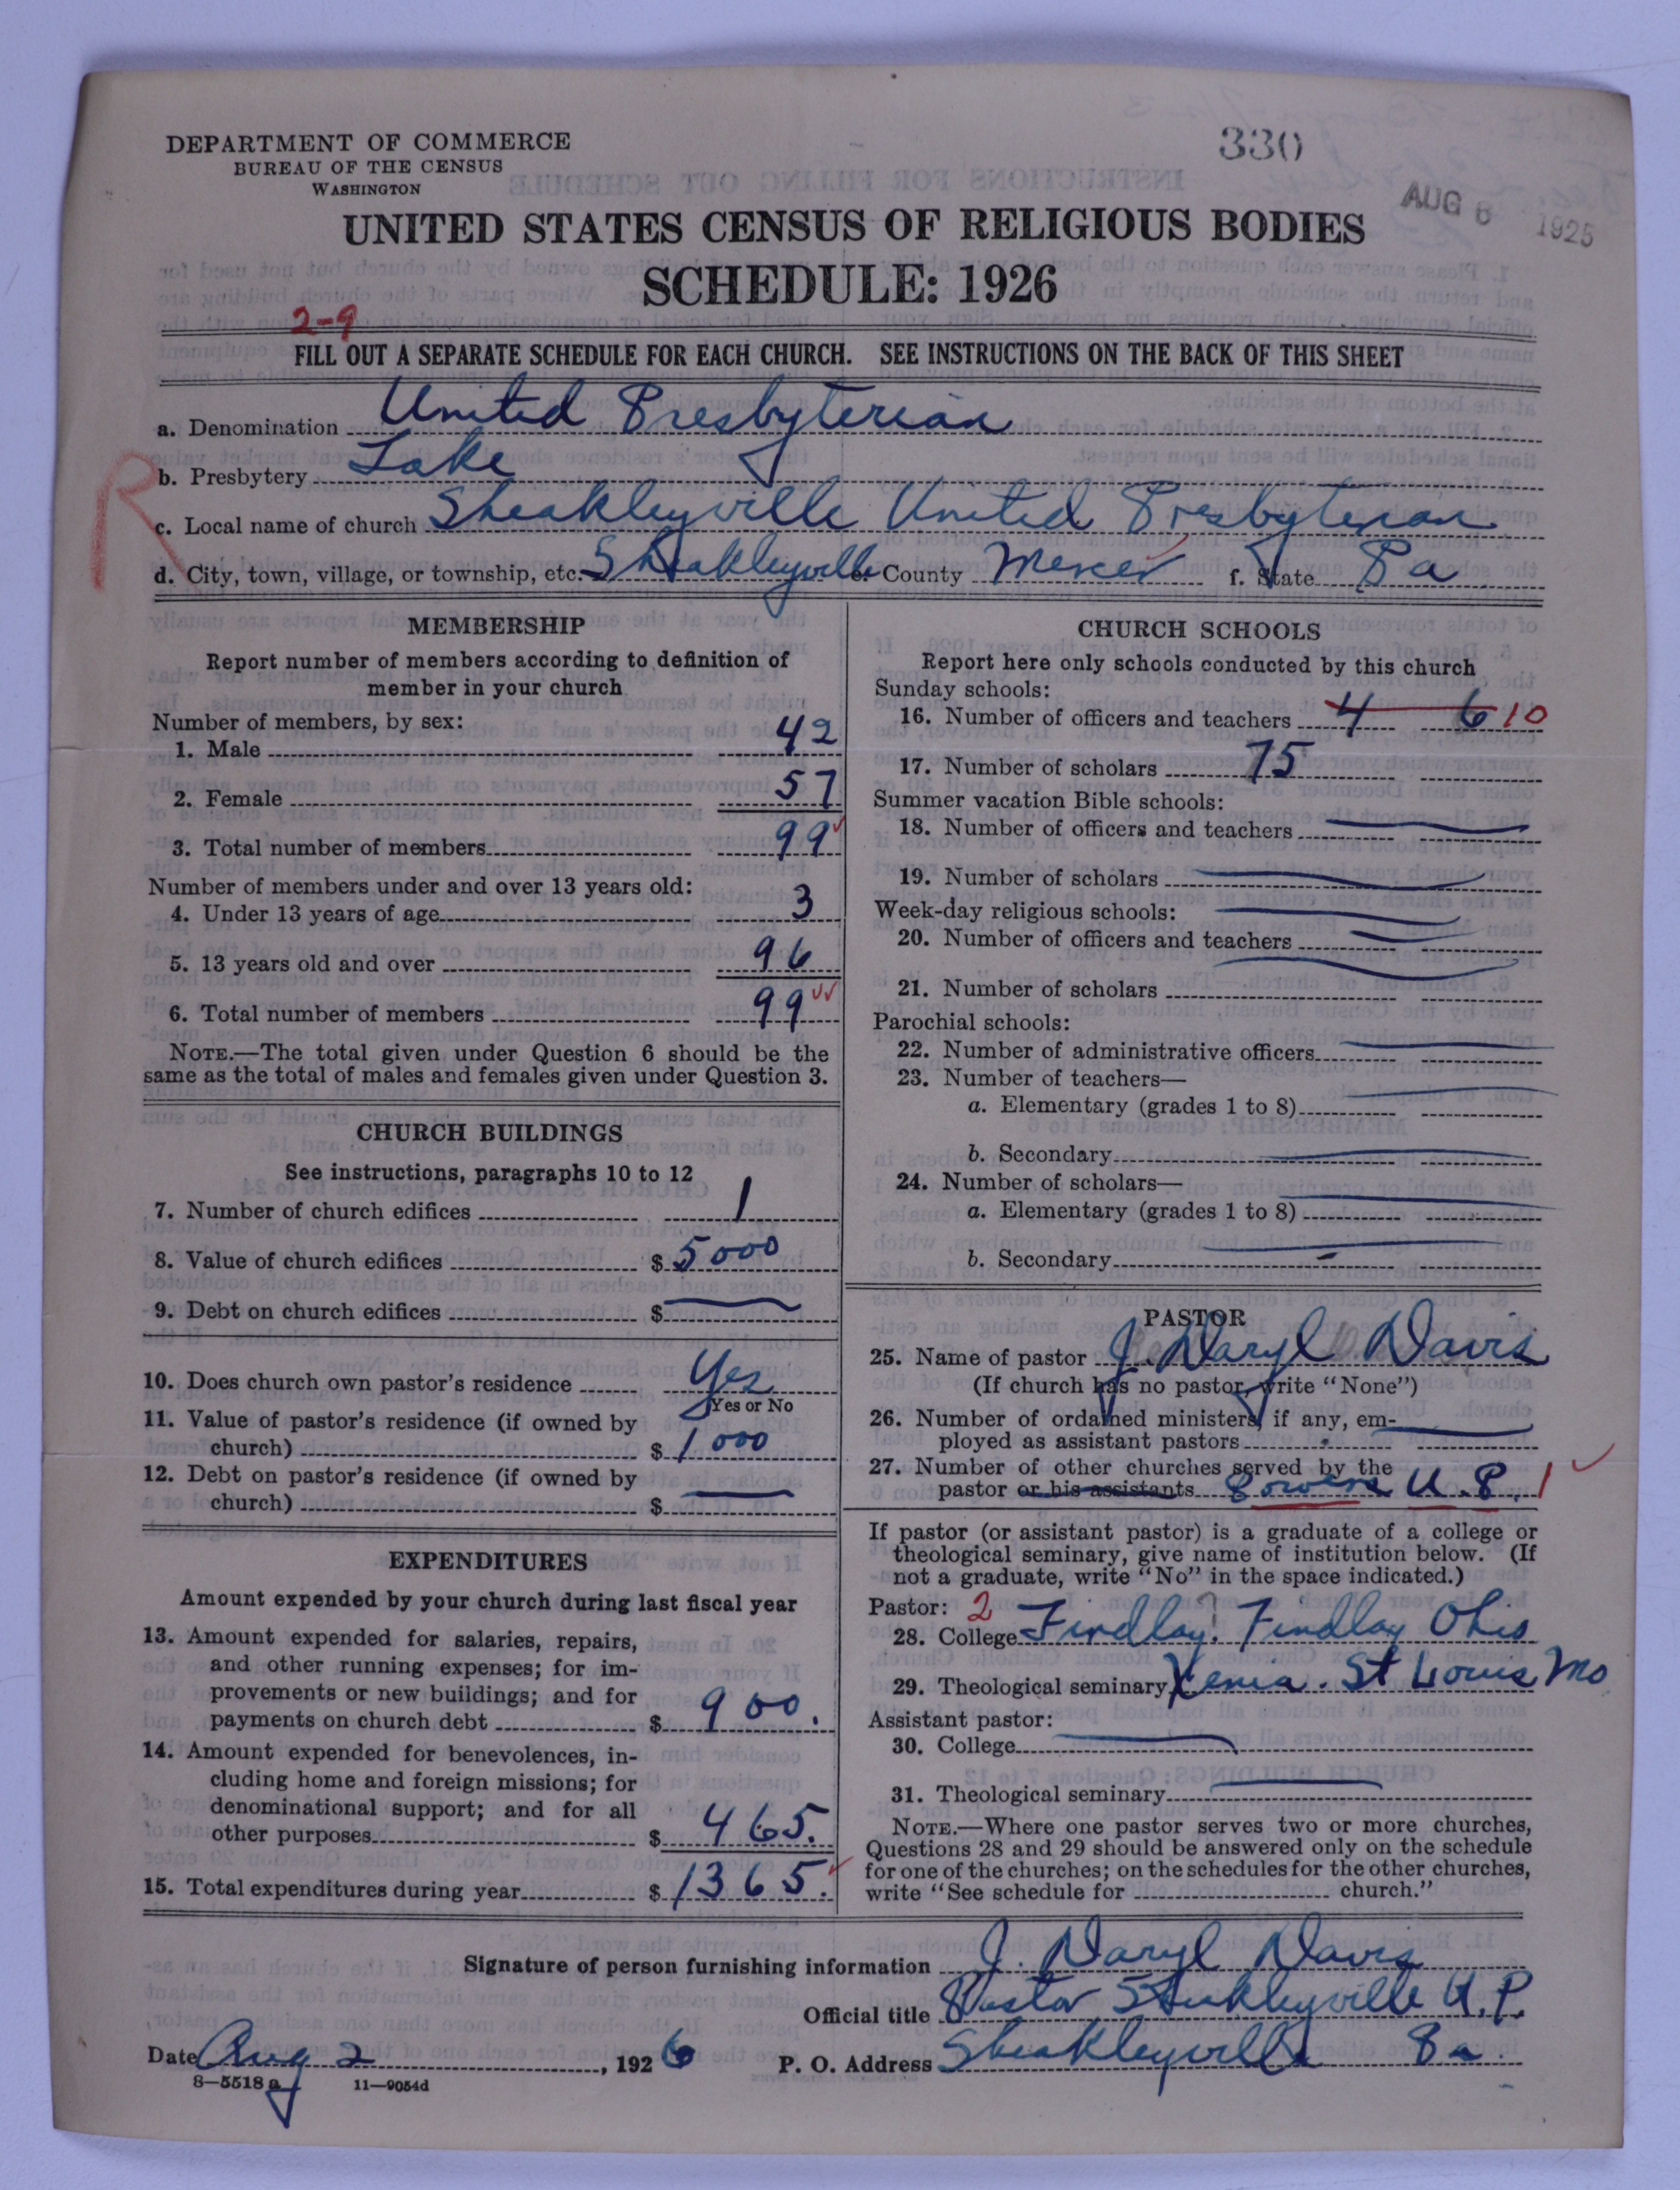 DEPARTMENT OF COMMERCE
BUREAU OF THE CENSUS
WASHINGTON
330
AUG 6 1925
UNITED STATES CENSUS OF RELIGIOUS BODIES
SCHEDULE: 1926
2-9
FILL OUT A SEPARATE SCHEDULE FOR EACH CHURCH. SEE INSTRUCTIONS ON THE BACK OF THIS SHEET
a. Denomination United Presbyterian
b. Presbytery Lake
R
c. Local name of church Sheakleyville United Presbyterian
d. City, town, village, or township, etc. Sheakleyville e. County Mercer f. State Pa
MEMBERSHIP
Report number of members according to definition of
member in your church
Number of members, by sex:
1. Male 42
2. Female 57
3. Total number of members 99
Number of members under and over 13 years old:
4. Under 13 years of age 3
5. 13 years old and over 96
6. Total number of members 99
NOTE.—The total given under Question 6 should be the
same as the total of males and females given under Question 3.
CHURCH BUILDINGS
See instructions, paragraphs 10 to 12
7. Number of church edifices 1
8. Value of church edifices $ 5000
9. Debt on church edifices $
10. Does church own pastor's residence Yes
Yes or No
11. Value of pastor's residence (if owned by
church) $ 1000
12. Debt on pastor's residence (if owned by
church) $
EXPENDITURES
Amount expended by your church during last fiscal year
13. Amount expended for salaries, repairs,
and other running expenses; for im-
provements or new buildings; and for
payments on church debt $ 900.
14. Amount expended for benevolences, in-
cluding home and foreign missions; for
denominational support; and for all
other purposes $ 465.
15. Total expenditures during year $ 1365.
CHURCH SCHOOLS
Report here only schools conducted by this church
Sunday schools:
16. Number of officers and teachers 4 6 10
17. Number of scholars 75
Summer vacation Bible schools:
18. Number of officers and teachers
19. Number of scholars
Week-day religious schools:
20. Number of officers and teachers
21. Number of scholars
Parochial schools:
22. Number of administrative officers
23. Number of teachers—
a. Elementary (grades 1 to 8)
b. Secondary
24. Number of scholars—
a. Elementary (grades 1 to 8)
b. Secondary
PASTOR
25. Name of pastor J. Daryl Davis
(If church has no pastor, write "None")
26. Number of ordained ministers, if any, em-
ployed as assistant pastors
27. Number of other churches served by the
pastor or his assistants U. P. 1
If pastor (or assistant pastor) is a graduate of a college or
theological seminary, give name of institution below. (If
not a graduate, write "No" in the space indicated.)
Pastor: 2
28. College Findlay. Findlay Ohio
29. Theological seminary Xenia. St Louis Mo
Assistant pastor:
30. College
31. Theological seminary
NOTE.—Where one pastor serves two or more churches,
Questions 28 and 29 should be answered only on the schedule
for one of the churches; on the schedules for the other churches,
write "See schedule for church."
Signature of person furnishing information J. Daryl Davis
Official title Pastor Sheakleyville U.P.
Date Aug 2, 1926 P. O. Address Sheakleyville Pa.
8—5518 a 11—9054d